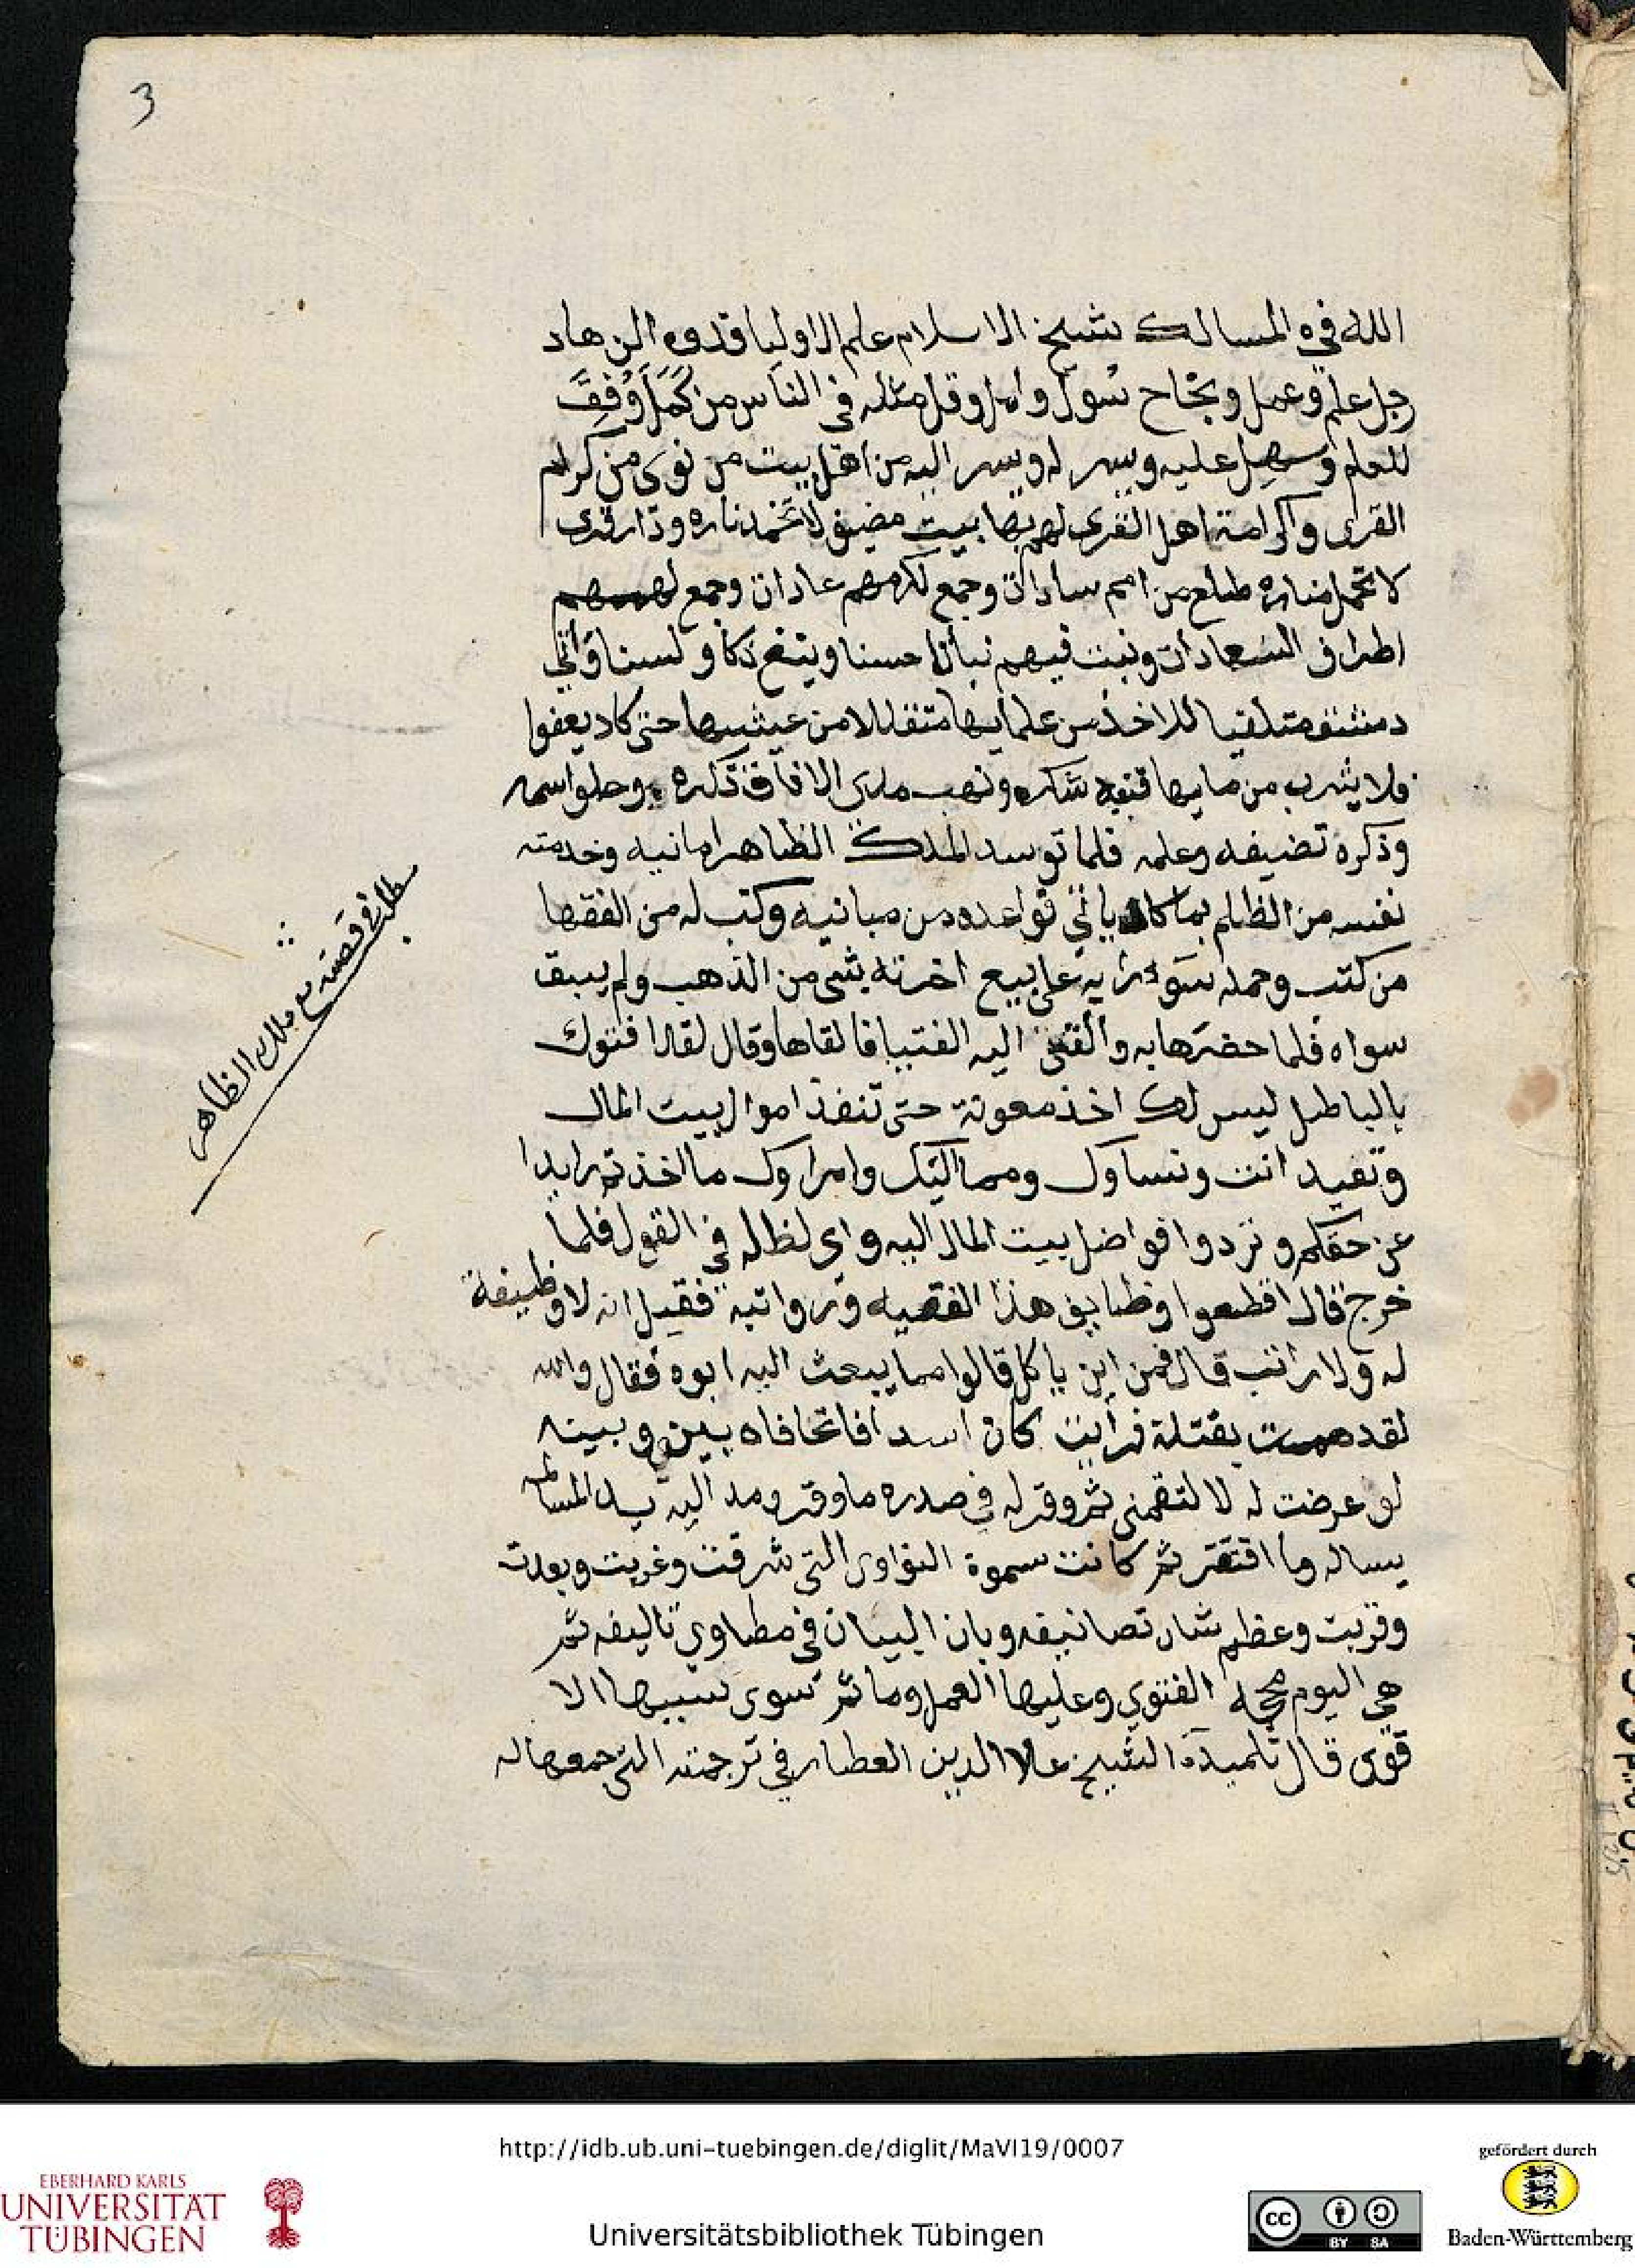 3
الله في المسالك شيخ الاسلام علم الاوليا قدوه الزهاد
رجل علم وعمل ونجاح سُول وامل وقل مثله في الناس من كَمَل وُفِّق
للعلم وسهل عليه ويسر له ويسر اليه من اهل بيت من نوى من كرام
القرى وكرامة اهل القرى لهم بها بيت مضيف لا تخمد ناره ودار قرى
لا تحمل مناره طلع من امم سادات وجمع لكرمهم عادات وجمع لهممهم
اطراف السعادات ونبت فيهم نباتا حسنا ونبغ ذكا ولسنا واتى
دمشق متلقيا للاخذ من علمايها متقللا من عيشها حتى كاد يعفوا
فلا يشرب من مايها فنبه شكره ونهب مدى الافاق ذكره وحلو اسمه
وذكره تضيفه وعلمه فلما توسد الملك الظاهر امانيه وخدمته
نفسه من الظلم بما كاد ياتي قواعده من مبانيه وكتب له من الفقها
من كتب وحمله سوء رايه على بيع اخرته بشي من الذهب ولم يبق
سواه فلما حضر هابه والقى اليه الفتيا فالقاها وقال لقد افتوك
بالباطل ليس لك اخذ معونة حتى تنفذ اموال بيت المال
وتعيد انت ونساوك ومماليك وامراوك ما اخذتم زايدا
عن حقكم وتردوا فواضل بيت المال اليه واغلظ له في القول فلما
خرج قال اقطعوا وظايف هذا الفقيه ورواتبه فقيل انه لا وظيفة
له ولا راتب قال فمن اين ياكل قالوا مما يبعث اليه ابوه فقال والله
لقد هممت بقتلة فرايت كان اسدا فاتحا فاه بيني وبينه
لو عرضت له لالتقمني ثم وقر له في صدره ما وقر ومد اليه يد المسالمه
يساله وما افتقر ثم كانت سموة النواوى التي شرقت وغربت وبعدت
وقربت وعظم شان تصانيفه وبان البيان في مطاوي تاليفه ثم
هي اليوم محجة الفتوى وعليها العمل وما ثم سوى سببها الا
قوى قال تلميذه الشيخ علا الدين العطار في ترجمته التي جمعها له
مطلب في قصته مع ملك الظاهر
http://idb.ub.uni-tuebingen.de/diglit/MaVI19/0007
EBERHARD KARLS
UNIVERSITÄT
TÜBINGEN
Universitätsbibliothek Tübingen
cc BY SA
gefördert durch
Baden-Württemberg